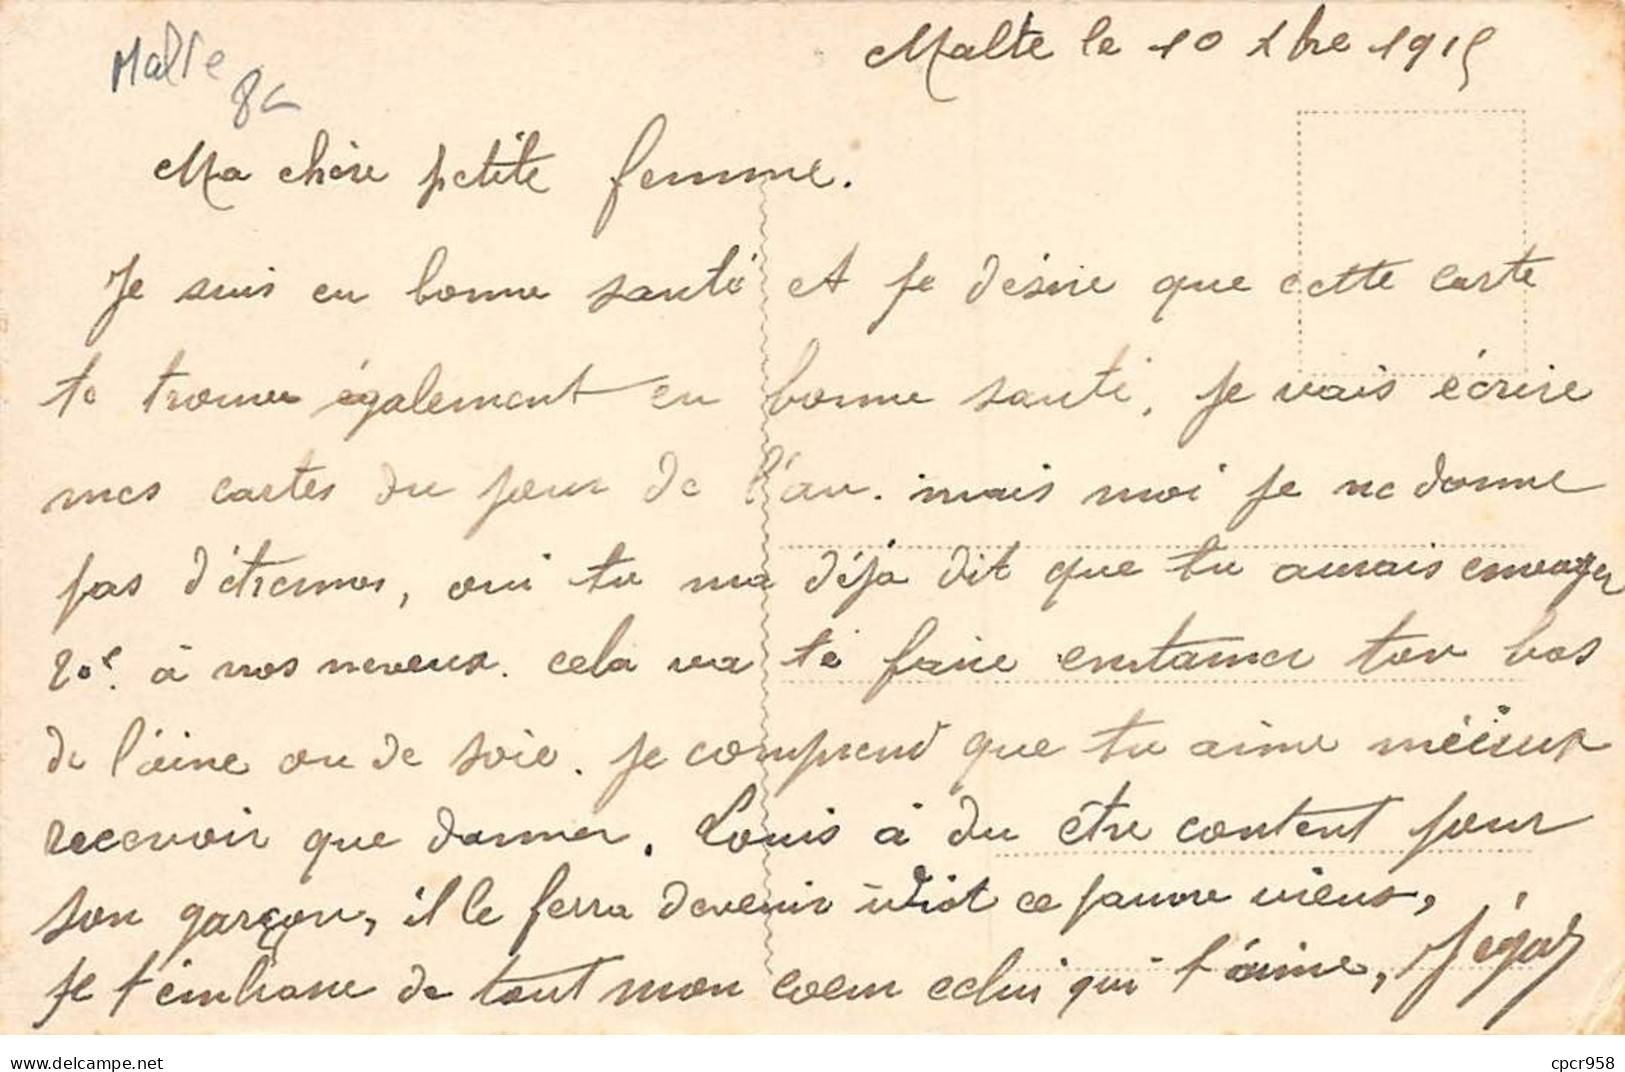 Malte le 10 Xbre 1915
Malte
Ma chère petite femme.
Je suis en bonne santé et je désire que cette carte
te trouve également en bonne santé, je vais écrire
mes cartes du jour de l'an. mais moi je ne donne
pas d'étrennes, oui tu ma déja dit que tu aurais envoyer
20f. à nos neveux. cela va te faire entamer ton bas
de l'aine ou de soie. je comprend que tu aime méieux
recevoir que donner. Louis à du être content pour
son garçon, il le ferra devenir idiot ce pauvre vieux,
je t'embrasse de tout mon coeur celui qui t'aime,
cpcr958